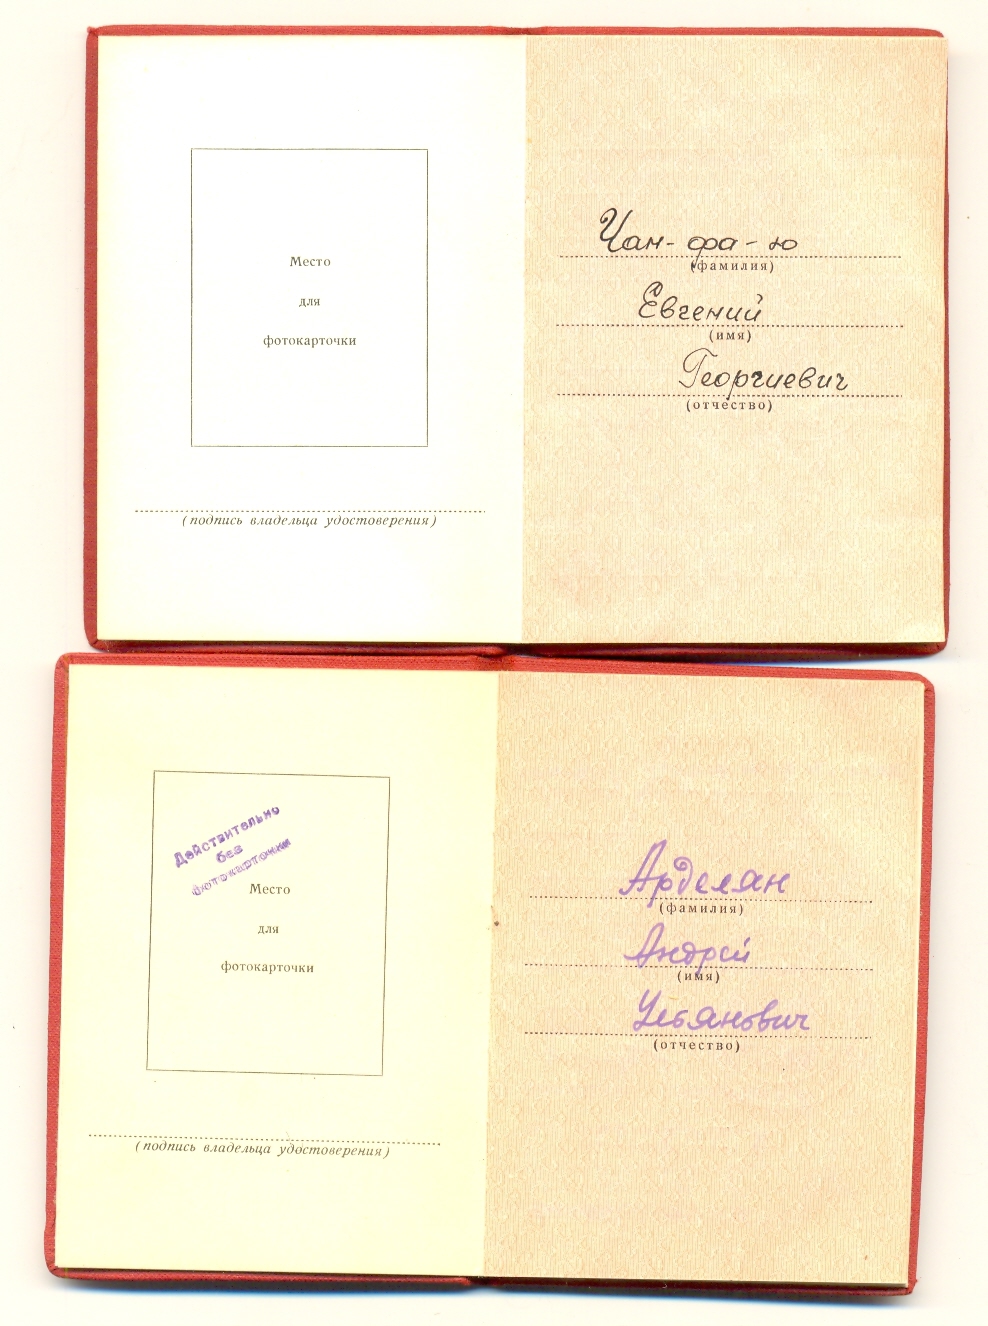 Место
для
фотокарточки
(подпись владельца удостоверения)
Чан-фа-ю
(фамилия)
Евгений
(имя)
Георгиевич
(отчество)
Действительно
без
фотокарточки
Место
для
фотокарточки
(подпись владельца удостоверения)
Арделян
(фамилия)
Андрей
(имя)
Ульянович
(отчество)